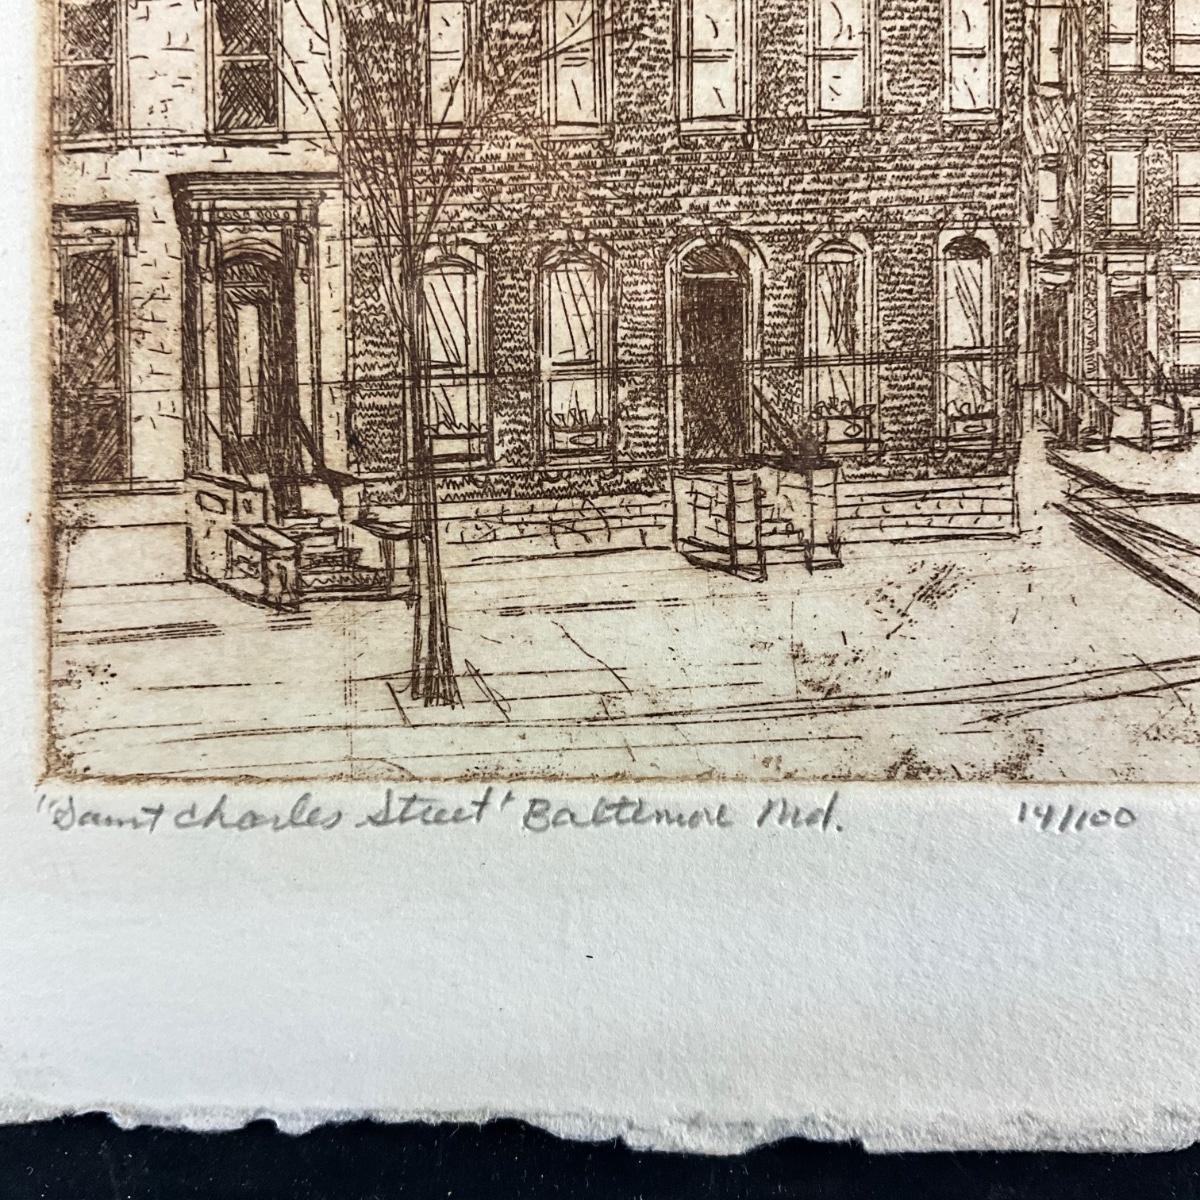 "Saint Charles Street" Baltimore Md. 14/100